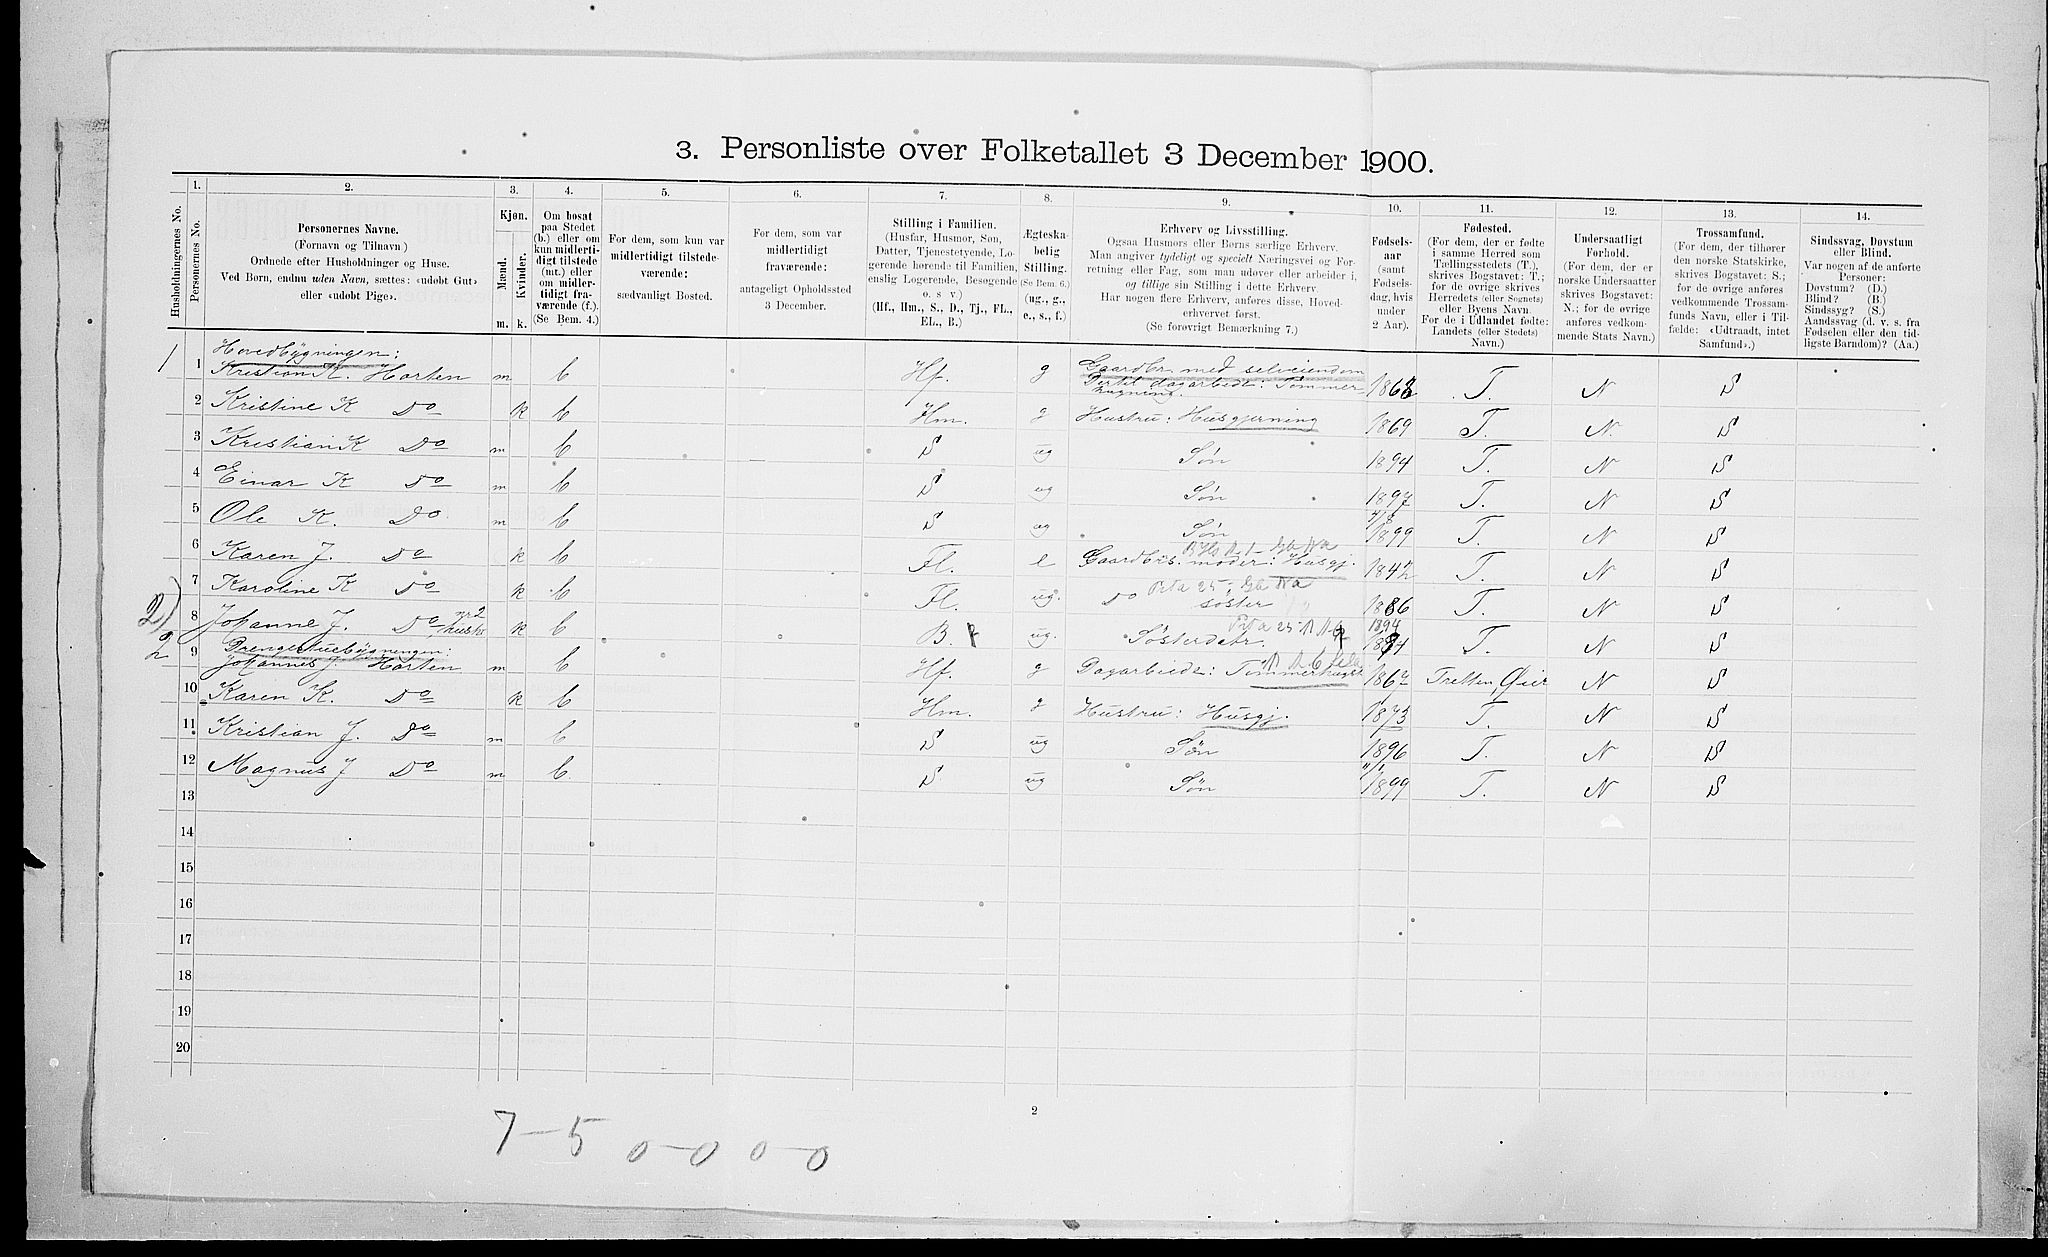 3. Personliste over Folketallet 3 December 1900.
Husholdningernes No.
1.
Personernes No.
2.
Personernes Navne.
(Fornavn og Tilnavn.)
Ordnede efter Husholdninger og Huse.
Ved Børn, endnu uden Navn, sættes: «udøbt Gut»
eller «udøbt Pige».
3.
Kjøn.
Mænd.
Kvinder.
m. k.
4.
Om bosat
paa Stedet
(b.) eller om
kun midlerti-
digt tilstede
(mt.) eller
om midler-
tidigt fra-
værende (f.).
(Se Bem. 4.)
5.
For dem, som kun var
midlertidigt tilstede-
værende:
sædvanligt Bosted.
6.
For dem, som var
midlertidigt
fraværende:
antageligt Opholdssted
3 December.
7.
Stilling i Familien.
(Husfar, Husmor, Søn,
Datter, Tjenestetyende, Lo-
gerende hørende til Familien,
enslig Logerende, Besøgende
o. s. v.)
(Hf., Hm., S., D., Tj., FL.,
EL., B.)
8.
Ægteska-
belig
Stilling.
(Se Bem. 6.)
(ug., g.,
e., s., f.)
9.
Erhverv og Livsstilling.
Ogsaa Husmors eller Børns særlige Erhverv.
Man angiver tydeligt og specielt Næringsvei og For-
retning eller Fag, som man udøver eller arbeider i,
og tillige sin Stilling i dette Erhverv.
Har nogen flere Erhverv, anføres disse, Hoved-
erhvervet først.
(Se forøvrigt Bemærkning 7.)
10.
Fødsels-
aar
(samt
Fødsels-
dag, hvis
under
2 Aar).
11.
Fødested.
(For dem, der er fødte
i samme Herred som
Tællingsstedets (T.),
skrives Bogstavet: T.;
for de øvrige skrives
Herredets (eller Sognets)
eller Byens Navn.
For de i Udlandet fødte:
Landets (eller Stedets)
Navn.)
12.
Undersaatligt
Forhold.
(For dem, der er
norske Undersaatter
skrives Bogstavet:
N.; for de øvrige
anføres vedkom-
mende Stats Navn.)
13.
Trossamfund.
(For dem, der tilhører
den norske Statskirke,
skrives Bogstavet: S.;
for de øvrige anføres
vedkommende Trossam-
funds Navn, eller i Til-
fælde: «Udtraadt, intet
Samfund».)
14.
Sindssvag, Døvstum
eller Blind.
Var nogen af de anførte
Personer:
Døvstum? (D.)
Blind? (B.)
Sindssyg? (S.)
Aandssvag (d. v. s. fra
Fødselen eller den tid-
ligste Barndom)? (Aa.)
Hovedbygningen:
1 1 Kristian K. Horten m b Hf. g Gaardbr. med selveiendom 1863 T. N S
Dertil dagarbeidr. Tømmer-
hugning.
2 Kristine K Do k b Hm. g Hustru: Husgjerning 1869 T. N. S
3 Kristian K Do m b S ug Søn 1894 T. N S
4 Einar K Do m b S ug Søn 1897 T. N S
5 Ole K. Do m b S ug Søn 1899 T. N S
6 Karen J. Do k b Fl. e Gaardbrs. moder: Husgj. 1842 T. N S
7 Karoline K Do k b. Fl. ug. Do søster 1886 T. N S
2) 8 Johanne J. Do nr 2 k b B. ug. Søsterdatr 1894 T. N S
Drengestuebygningen:
2 9 Johannes J. Horten m b Hf. g Dagarbeidr: Tømmerhugst 1867 Tretten, Øier N S
10 Karen K. Do k b Hm. g Hustru: Husgj. 1873 T. N S
11 Kristian J. Do m b S ug Søn 1896 T. N S
12 Magnus J Do m b S. ug Søn 1899 T. N S
13
14
15
16
17
18
19
20
2
7-5 0-0 0-0